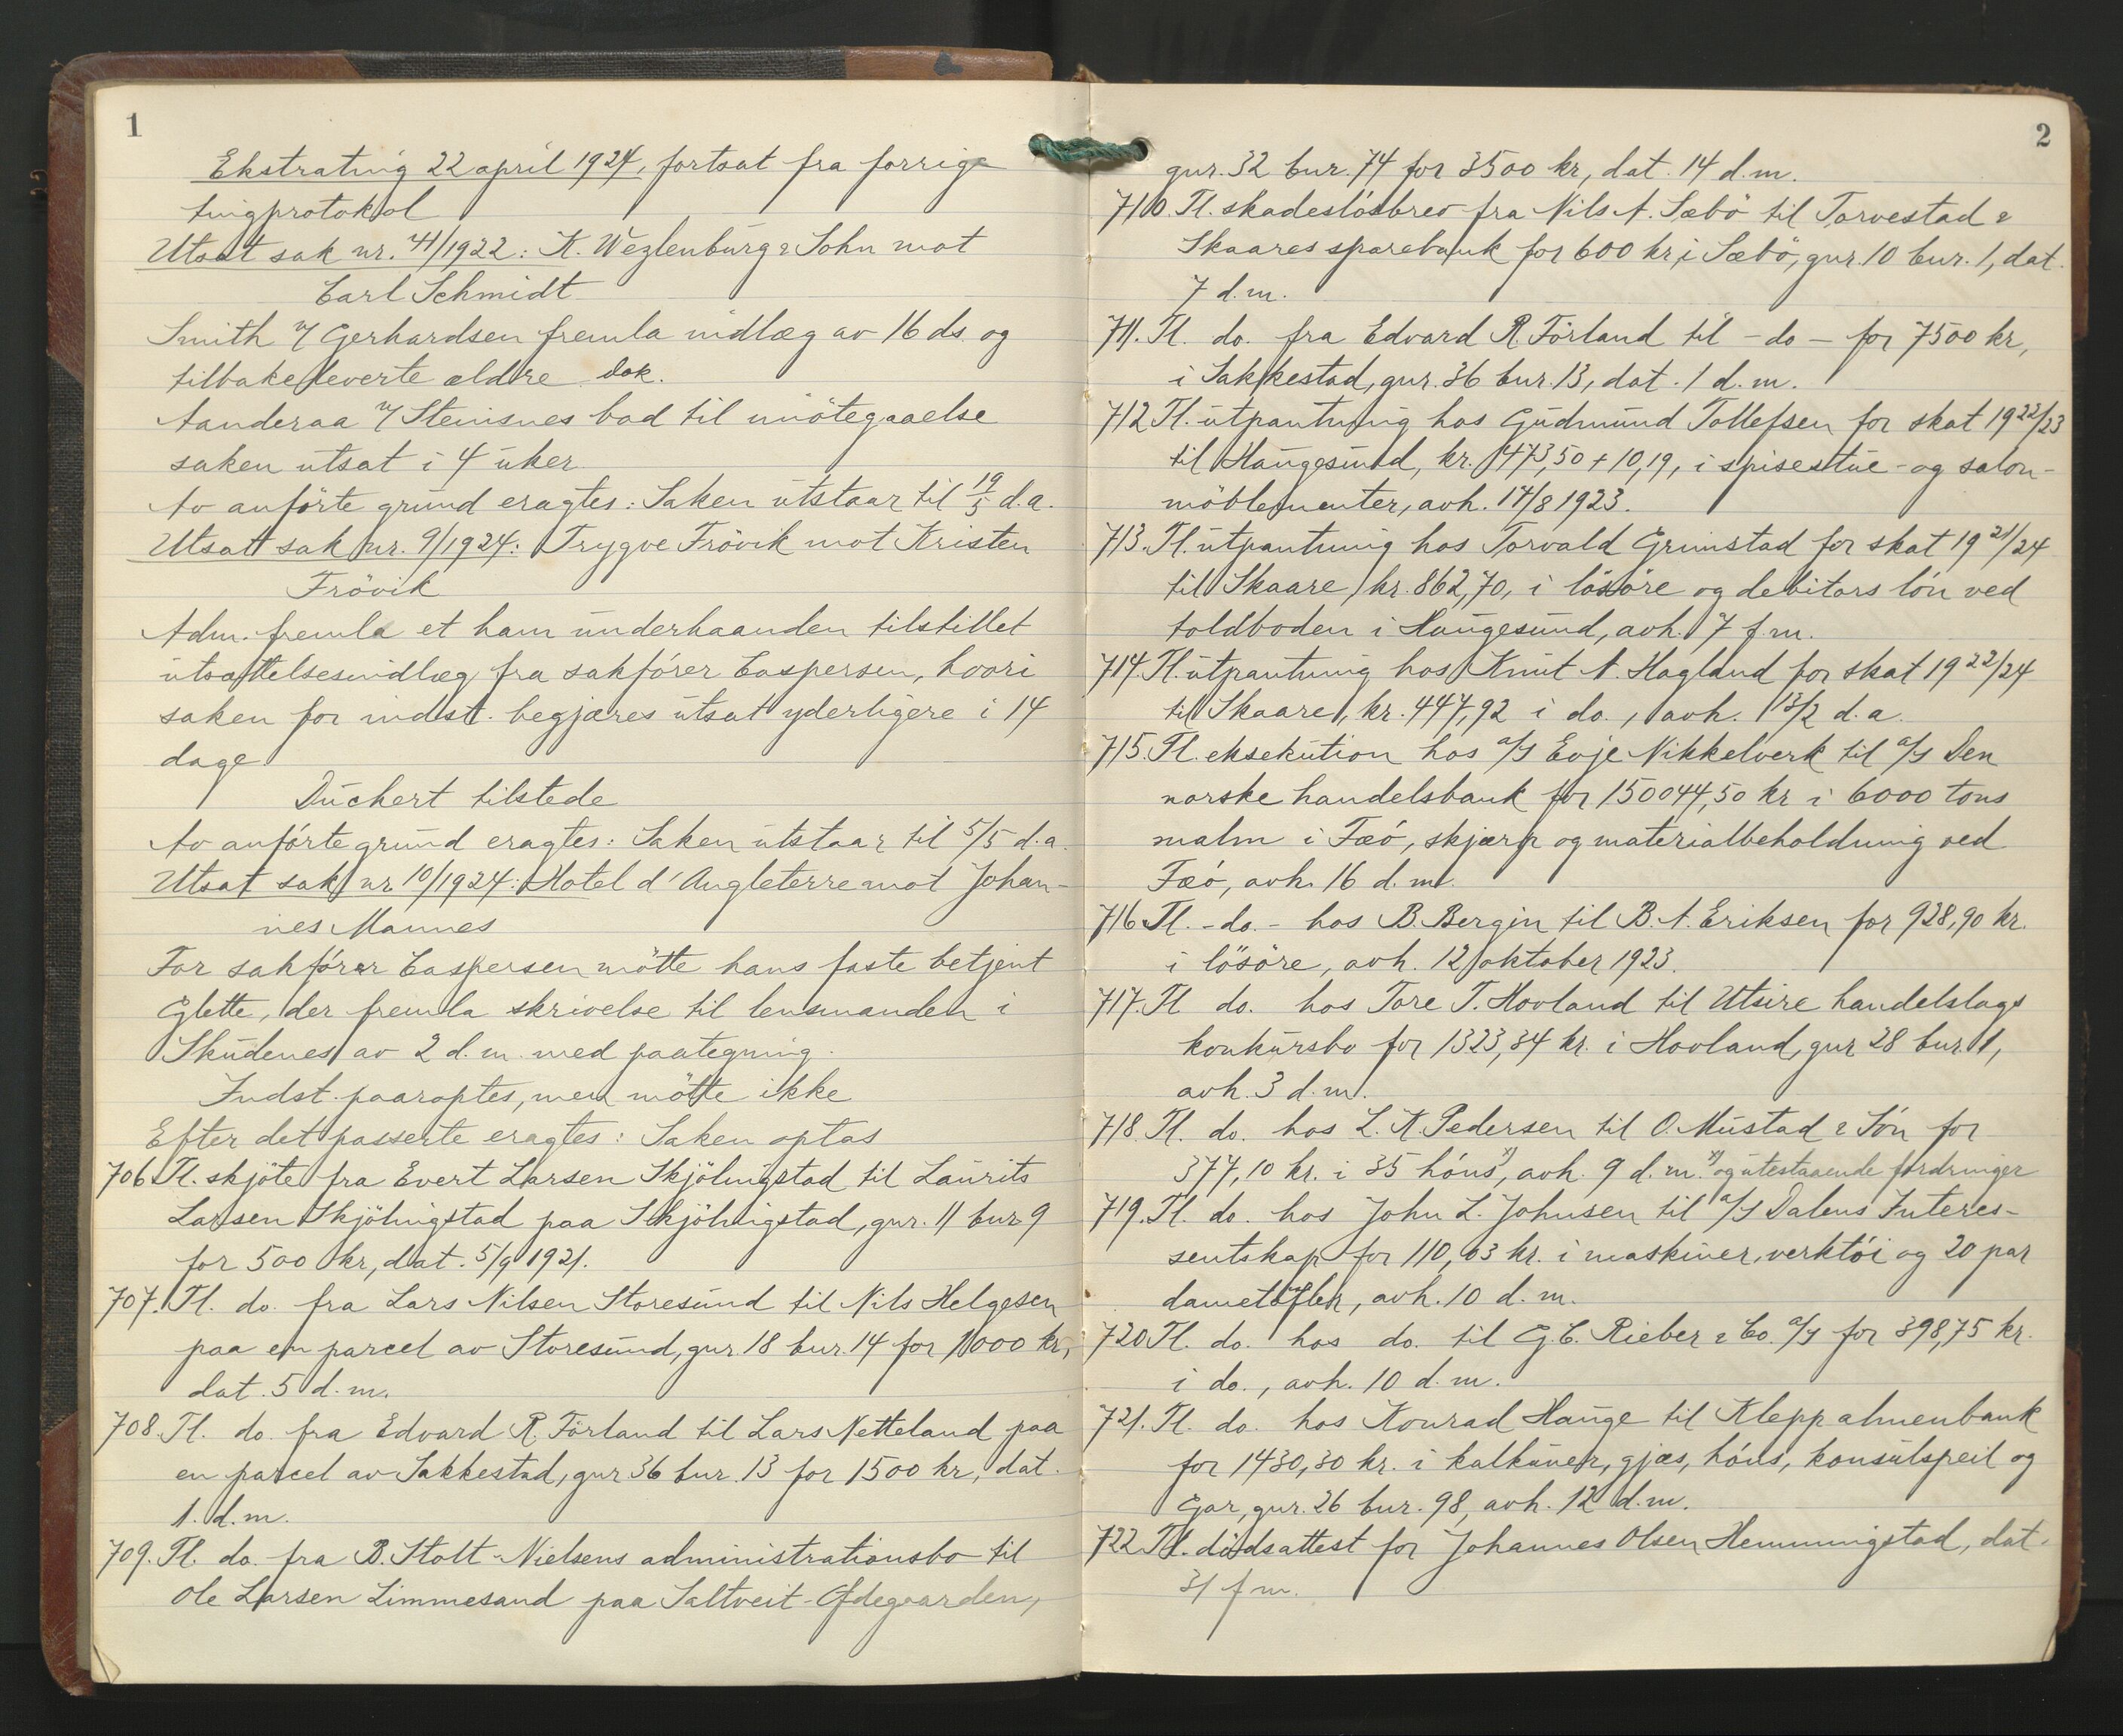 1
Ekstrating 22 april 1924, fortsat fra forrige
tingprotokol
Utsat sak nr. 41/1922: K. Wezlenburg & Sohn mot
Carl Schmidt
Smith v/ Gerhardsen fremla indlæg av 16 ds. og
tilbakeleverte ældre dok.
Aanderaa v/ Steinsnes bad til imötegaaelse
saken utsat i 4 uker.
Av anförte grund eragtes: Saken utstaar til 19/5 d.a.
Utsatt sak nr. 9/1924: Trygve Frövik mot Kristen
Frövik
Adm. fremla et ham underhaanden tilstillet
utsættelsesindlæg fra sakförer Caspersen, hvori
saken for indst. begjæres utsat yderligere i 14
dage
Duckert tilstede
Av anförte grund eragtes: Saken utstaar til 5/5 d.a.
Utsat sak nr 10/1924: Hotel d'Angleterre mot Johan-
nes Mannes
For sakförer Caspersen mötte hans faste betjent
Glette, der fremla skrivelse til lensmanden i
Skudenes av 2 d.m. med paategning.
Indst. paaroptes, men mötte ikke
Efter det passerte eragtes: Saken optas
706 Tl. skjöte fra Evert Larsen Skjölingstad til Laurits
Larsen Skjölingstad paa Skjölingstad, gnr. 11 bnr 9
for 500 kr, dat. 5/9 1921.
707. Tl. do. fra Lars Nilsen Storesund til Nils Helgesen
paa en parcel av Storesund, gnr. 18 bnr. 14 for 1000 kr,
dat. 5 d.m.
708. Tl. do. fra Edvard R. Förland til Lars Netteland paa
en parcel av Sakkestad, gnr 36 bnr. 13 for 1500 kr, dat.
1. d.m.
709. Tl. do. fra B. Stolt-Nielsens administrationsbo til
Ole Larsen Limmesand paa Saltveit-Ödegaarden,
2
gnr. 32 bnr. 74 for 3500 kr, dat. 14 d.m.
710. Tl. skadeslösbrev fra Nils A. Sæbö til Torvestad &
Skaares sparebank for 600 kr, i Sæbö, gnr. 10 bnr. 1, dat.
7 d.m.
711. Tl. do. fra Edvard R. Förland til - do - for 7500 kr,
i Sakkestad, gnr. 36 bnr. 13, dat. 1 d.m.
712 Tl. utpantning hos Gudmund Tollefsen for skat 1922/23
til Haugesund, kr. 1473,50 + 10,19, i spisestue- og salon-
möblementer, avh. 14/8 1923.
713. Tl. utpantning hos Torvald Grimstad for skat 1921/24
til Skaare, kr. 862,70, i lösöre og debitors lön ved
toldboden i Haugesund, avh. 7 f.m.
714. Tl. utpantning hos Knut A. Hagland for skat 1922/24
til Skaare, kr. 447,92 i do., avh. 13/2 d.a.
715. Tl. eksekution hos a/s Evje Nikkelverk til a/s Den
norske handelsbank for 150044,50 kr i 6000 tons
malm i Fæö, skjærp og materialbeholdning ved
Fæö, avh. 16 d.m.
716 Tl. - do. - hos B. Bergin til B.A. Eriksen for 928,90 kr.
i lösöre, avh. 12 oktober 1923.
717. Tl do. hos Tore T. Hovland til Utsire handelslags
konkursbo for 1323,34 kr. i Hovland, gnr 28 bnr. 1,
avh. 3 d.m.
718. Tl. do. hos L. A. Pedersen til O. Mustad & Sön for
377,10 kr. i 35 höns x), avh. 9 d.m. x) og utestaaende fordringer
719. Tl. do. hos John L. Johnsen til a/s Dalens Interes-
sentskap for 110,03 kr. i maskiner, verktöi og 20 par
dametöfler, avh. 10 d.m.
720 Tl. do. hos do. til G.C. Rieber & Co. a/s for 398,75 kr.
i do., avh. 10 d.m.
721. Tl. do. hos Konrad Hauge til Klepp almenbank
for 1430,30 kr. i kalkuner, gjæs, höns, konsulspeil og
Gar, gnr. 26 bnr. 98, avh. 12 d.m.
722 Tl. dödsattest for Johannes Olsen Hemmingstad, dat.
31 f.m.